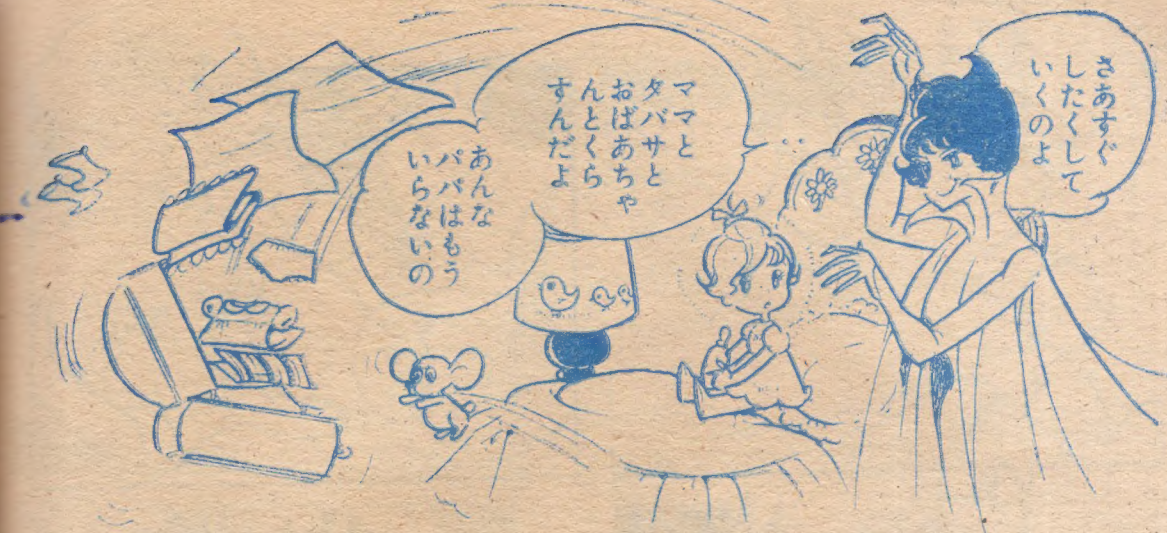 さあすぐ
したくして
いくのよ
ママと
タバサと
おばあちゃ
んとくら
すんだよ
あんな
パパはもう
いらないの